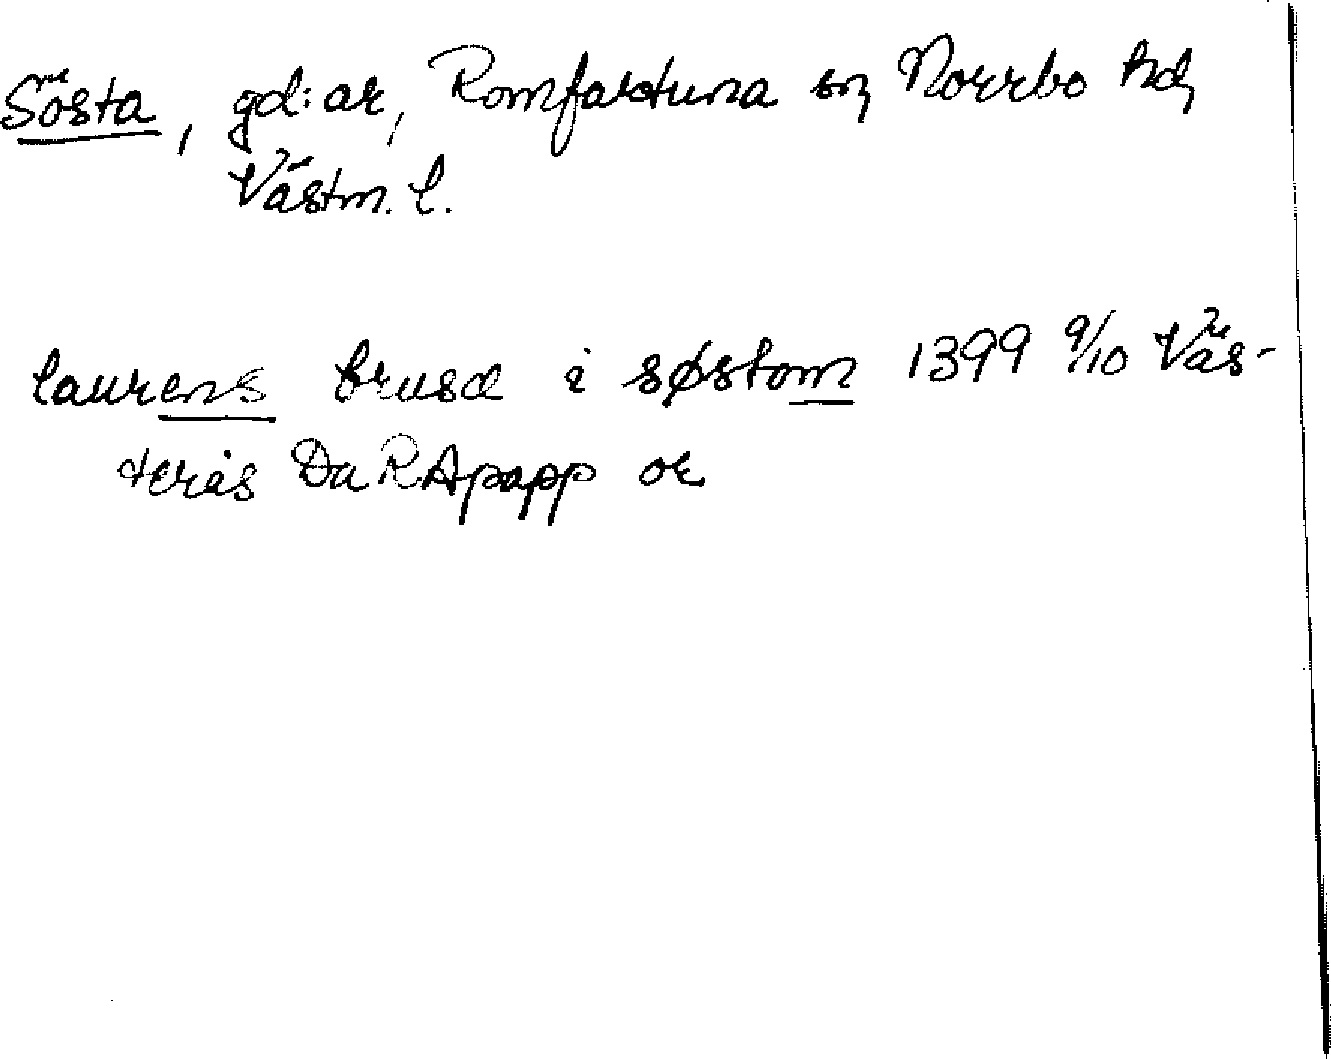 Sösta, gd:ar, Romfartuna sn Norrbo hd,
Västm. l.
laurens brusæ i søstom 1399 9/10 Väs-
terås Da RApapp or